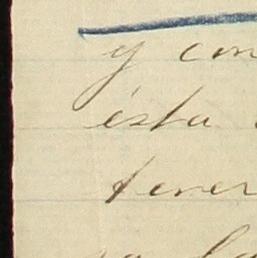 y con
ésta
tener